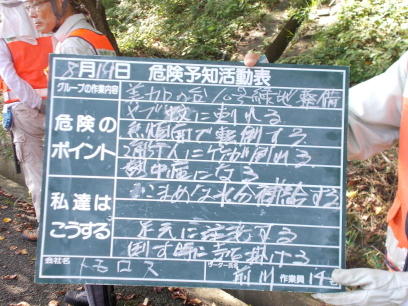 8月19日 危険予知活動表
グループの作業内容 美加の台 10号緑地整備
危険のポイント
やぶ蚊に刺れる
急傾面で転倒する
通行人に竹が倒れる
熱中症になる
私達はこうする
こまめな水分補給する
足元に注意する
倒す時に声を掛ける
会社名 トモロス リーダー氏名 前川 作業員 14名